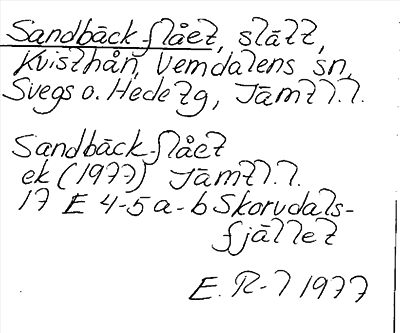 Sandbäckflået, slått,
Kvisthån, Vemdalens sn,
Svegs o. Hede tg, Jämtl.l.
Sandbäck-flået
ek (1977) Jämtl.l.
17 E 4-5 a-b Skorvdals-
fjället
E. R-l 1977